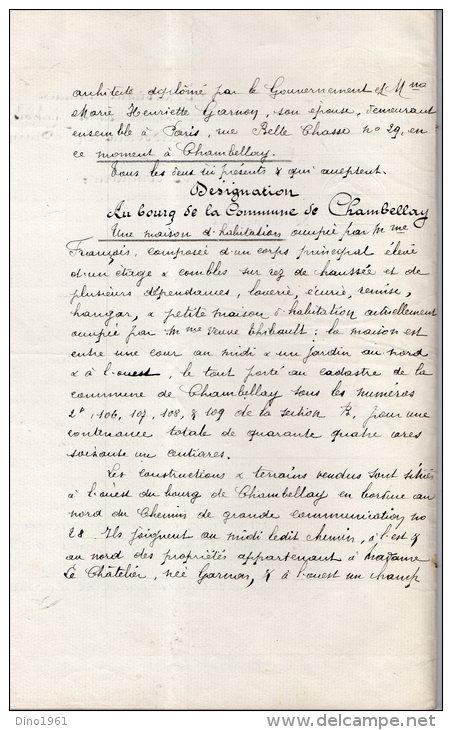 architecte diplômé par le Gouvernement et Mme
Marie Henriette Garnon, son epouse, demeurant
ensemble à Paris, rue Belle Chasse no 29, en
ce moment à Chambellay.
Tous les deux ici présents & qui acceptent.
Désignation
Au bourg de la Commune de Chambellay
Une maison d'habitation occupée par Mme
François, composée d'un corps principal élevé
d'un étage & combles sur rez de haussée et de
plusieurs dépendances, laverie, écurie, remise,
hangar, & petite maison d'habitation actuellement
occupée par Mme Veuve Thibault : la maison est
entre une cour au midi & un jardin au nord
& à l'ouest, le tout porté au cadastre de la
commune de Chambellay sous les numéros
106, 107, 108, & 109 de la section B, pour une
contenance totale de quarante quatre ares
soixante un centiares.
Les constructions & terrains vendus sont situés
à l'ouest du bourg de Chambellay en bordure au
nord du Chemin de grande communication no
28. Ils joignent au midi ledit chemin, à l'est &
au nord des propriétés appartenant à Madame
Le Châtelier, née Garnon, & à l'ouest un champ
Dino1961
www.delcampe.net